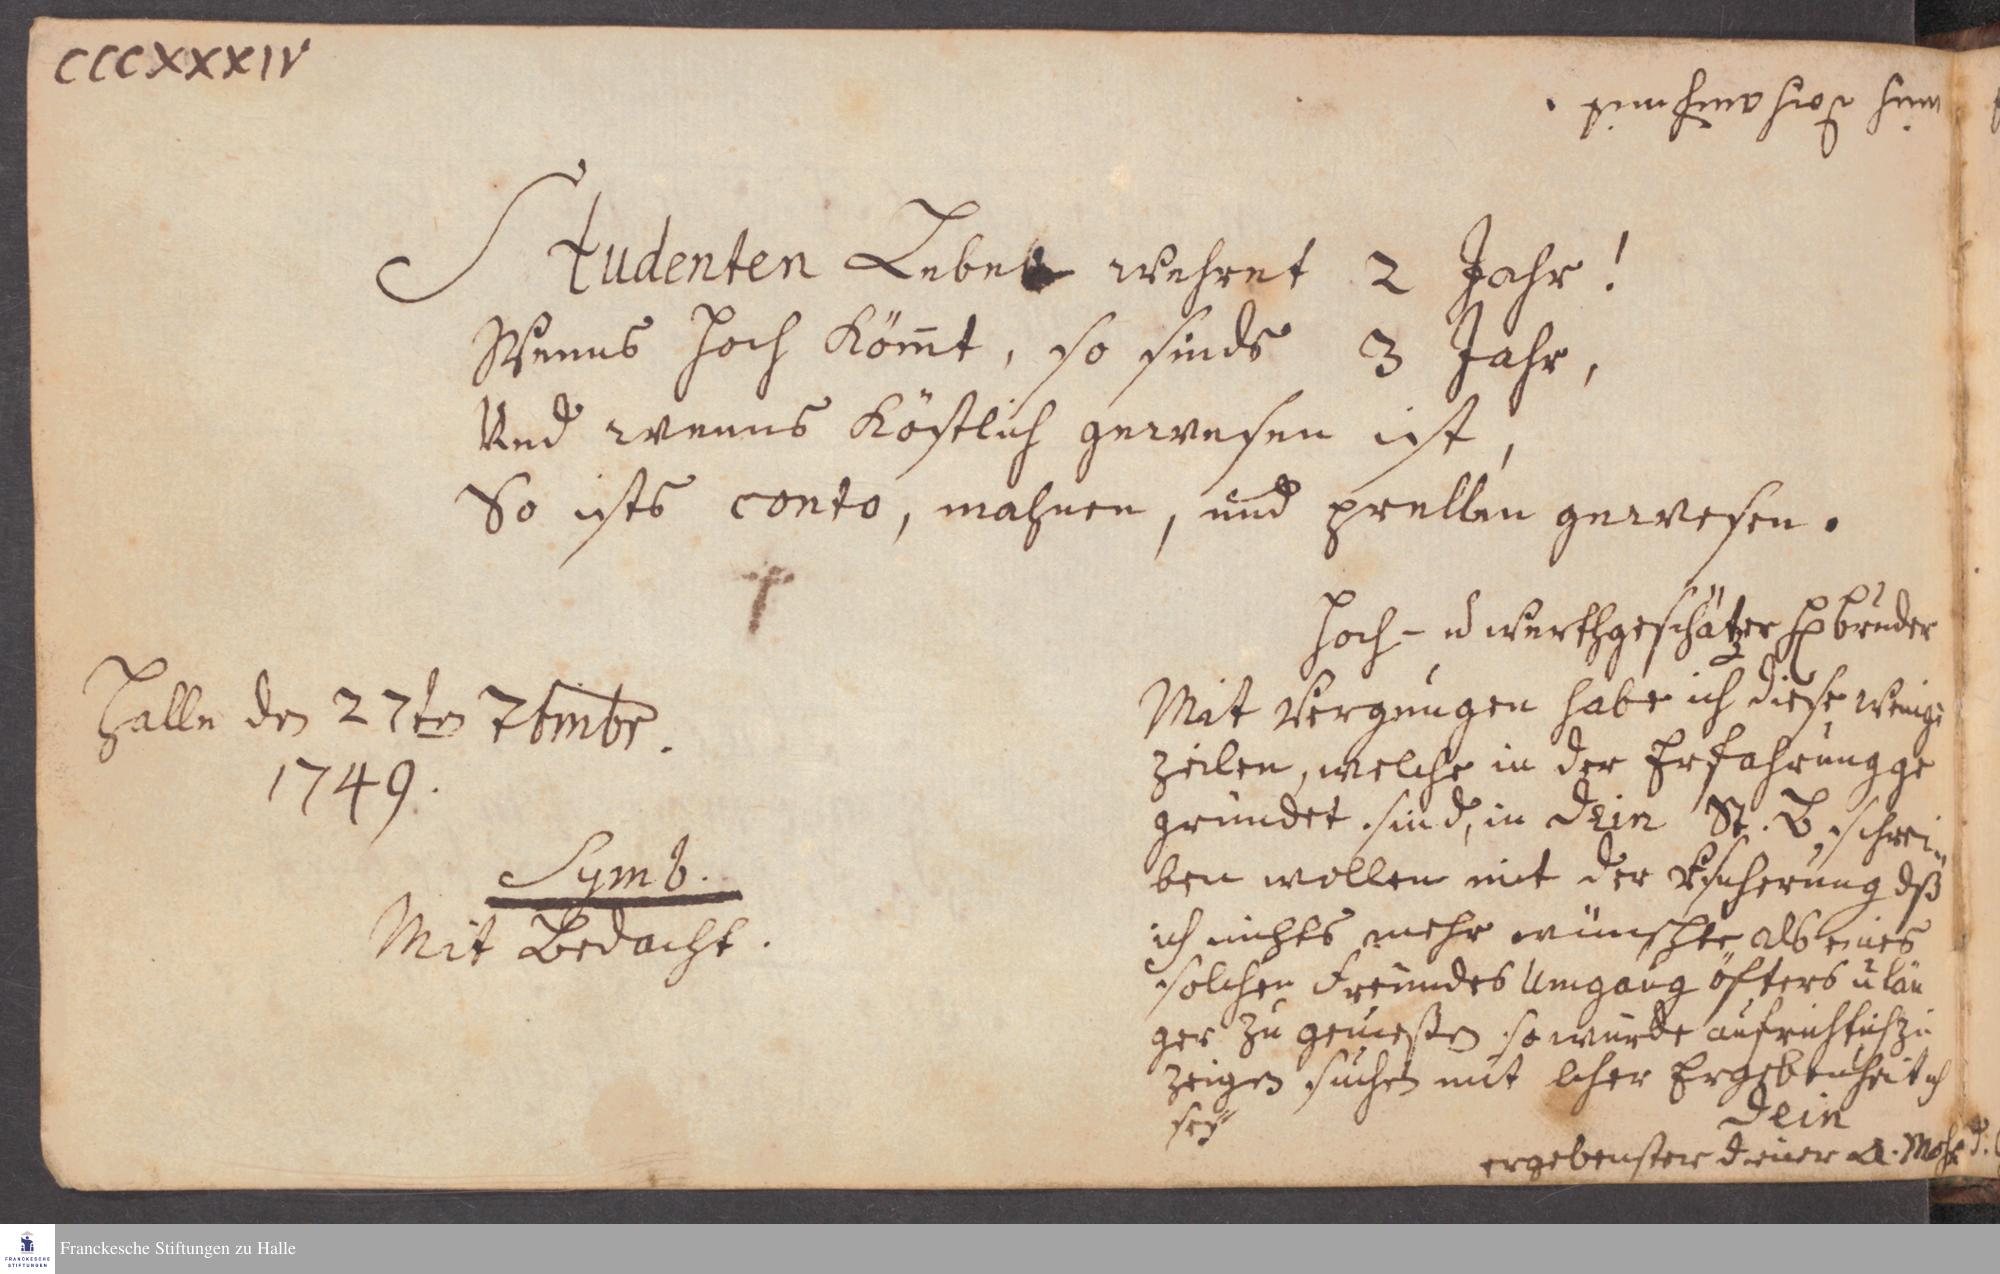 CCCXXXIV
Studenten Leben wehret 2 Jahr!
Wenns hoch kom̄t, so sinds 3 Jahr,
Und wenns köstlich gewesen ist,
So ists conto, mahnen, und prellen gewesen.
Halle den 27ten 7bmbr.
1749.
Symb.
Mit Bedacht.
Hoch- u werthgeschätzer H bruder
Mit Vergnugen habe ich diese wenige
Zeilen, welche in der Erfahrung ge
gründet sind, in Dein St. B. schrei
ben wollen mit der Vsicherung dß
ich nichts mehr wünschte als eines
solchen Freundes Umgang öfters u län
ger zu genießen so wurde aufrichtich zu
zeigen suchen mit lcher Ergebenheit ich
sey
Dein
ergebenster diener
Franckesche Stiftungen zu Halle
FRANCKESCHE
STIFTUNGEN